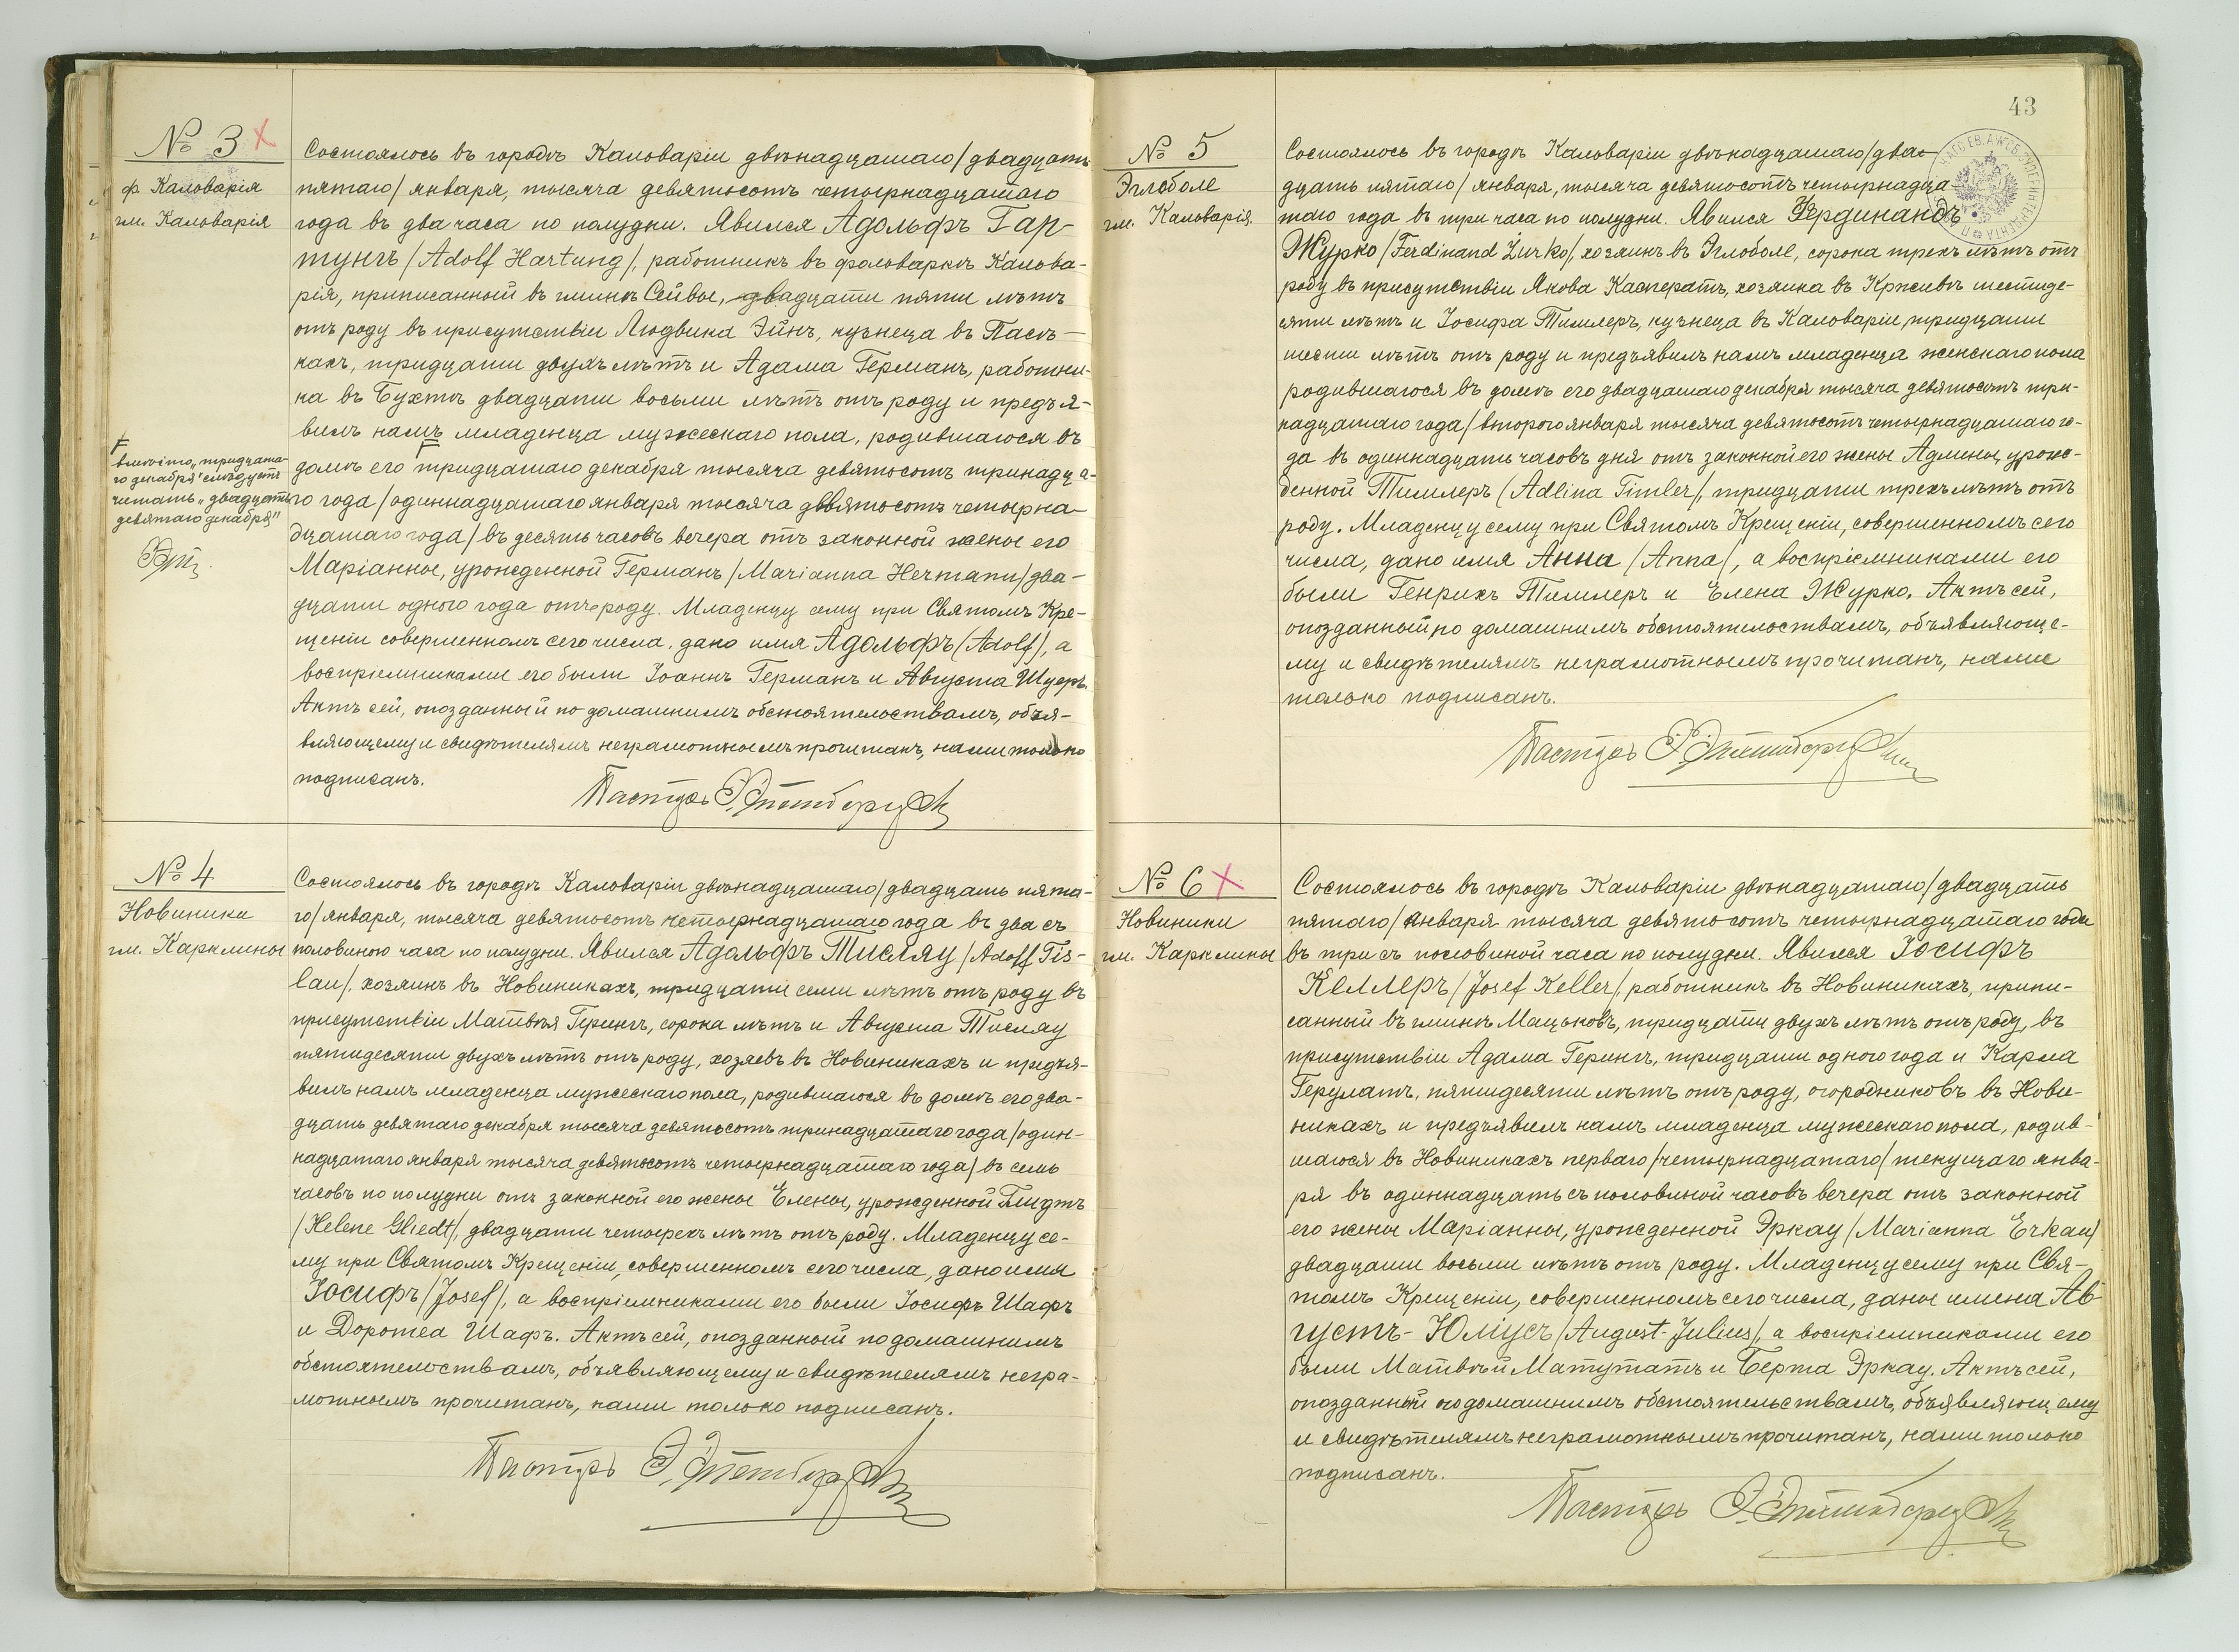 № 3
ф. Кальварія
гм. Кальварія
Состоялось въ городѣ Кальваріи двѣнадцатаго /двадцать
пятаго/ января, тысяча девятьсотъ четырнадцатаго
года въ два часа по полудни. Явился Адольфъ Гар-
тунгъ /Adolf Hartung/, работникъ въ фольваркѣ Кальва-
рія, приписанный въ гминѣ Сейвы, двадцати пяти лѣтъ
отъ роду въ присутствіи Людвика Эйнъ, кузнеца въ Пасѣ-
кахъ, тридцати двухъ лѣтъ и Адама Германъ, работни-
ка въ Бухтѣ двадцати восьми лѣтъ отъ роду и предъя-
вилъ намъ младенца мужескаго пола, родившагося въ
домѣ его тридцатаго декабря тысяча девятьсотъ тринадца-
го года /одиннадцатаго января тысяча девятьсотъ четырна-
дцатаго года/ въ десять часовъ вечера отъ законной жены его
Маріанны, урожденной Германъ /Marianna Hermann/ два-
дцати одного года отъ роду. Младенцу сему при Святомъ Кре-
щеніи совершенномъ сего числа, дано имя Адольфъ /Adolf/, а
воспріемниками его были Іоаннъ Германъ и Августа Шуеръ.
Актъ сей, опозданный по домашнимъ обстоятельствамъ, объя-
вляющему и свидѣтелямъ неграмотнымъ прочитанъ, нами только
подписанъ.
Пасторъ
вмѣсто „тридцата-
го декабря" слѣдуетъ
читать „двадцать
девятаго декабря"
№ 4
Новиники
гм. Карклины
Состоялось въ городѣ Кальваріи двѣнадцатаго /двадцать пята-
го/ января, тысяча девятьсотъ четырнадцатаго года въ два съ
половиною часа по полудни. Явился Адольфъ Тислау /Adolf Tis-
lau/, хозяинъ въ Новиникахъ, тридцати семи лѣтъ отъ роду въ
присутствіи Матвѣя Герингъ, сорока лѣтъ и Августа Тислау
пятидесяти двухъ лѣтъ отъ роду, хозяевъ въ Новиникахъ и предъя-
вилъ намъ младенца мужескаго пола, родившагося въ домѣ его два-
дцать девятаго декабря тысяча девятьсотъ тринадцатаго года /один-
надцатаго января тысяча девятьсотъ четырнадцатаго года/ въ семь
часовъ по полудни отъ законной его жены Елены, урожденной Глидтъ
/Helene Gliedt/, двадцати четырехъ лѣтъ отъ роду. Младенцу се-
му при Святомъ Крещеніи, совершенномъ сего числа, дано имя
Іосифъ /Josef/, а воспріемниками его были Іосифъ Шафъ
и Доротеа Шафъ. Актъ сей, опозданный по домашнимъ
обстоятельствамъ, объявляющему и свидѣтелямъ негра-
мотнымъ прочитанъ, нами только подписанъ.
Пасторъ
43
№ 5
Эглоболе
гм. Кальварія
Состоялось въ городѣ Кальваріи двѣнадцатаго /два-
дцать пятаго/ января, тысяча девятьсотъ четырнадца-
таго года въ три часа по полудни. Явился Фердинандъ
Журко /Ferdinand Żurko/, хозяинъ въ Эглоболе, сорока трехъ лѣтъ отъ
роду въ присутствіи Якова Касператъ, хозяина въ Крживѣ шестиде-
сяти лѣтъ и Іосифа Тимлеръ, кузнеца въ Кальваріи, тридцати
шести лѣтъ отъ роду и предъявилъ намъ младенца женскаго пола
родившагося въ домѣ его двадцатаго декабря тысяча девятьсотъ три-
надцатаго года /второго января тысяча девятьсотъ четырнадцатаго го-
да въ одиннадцать часовъ дня отъ законной его жены Адлины, урож-
денной Тимлеръ /Adlina Timler/, тридцати трехъ лѣтъ отъ
роду. Младенцу сему при Святомъ Крещеніи, совершенномъ сего
числа, дано имя Анна /Anna/, а воспріемниками его
были Генрихъ Тимлеръ и Елена Журко. Актъ сей,
опозданный по домашнимъ обстоятельствамъ, объявляюще-
му и свидѣтелямъ неграмотнымъ прочитанъ, нами
только подписанъ.
Пасторъ
№ 6
Новиники
гм. Карклины
Состоялось въ городѣ Кальваріи двѣнадцатаго /двадцать
пятаго/ января тысяча девятьсотъ четырнадцатаго года
въ три съ половиной часа по полудни. Явился Іосифъ
Келлеръ /Josef Keller/, работникъ въ Новиникахъ, припи-
санный въ гминѣ Мацьковъ, тридцати двухъ лѣтъ отъ роду, въ
присутствіи Адама Герингъ, тридцати одного года и Карла
Герулатъ, пятидесяти лѣтъ отъ роду, огородниковъ въ Нови-
никахъ и предъявилъ намъ младенца мужескаго пола, родив-
шагося въ Новиникахъ перваго /четырнадцатаго/ текущаго янва-
ря въ одиннадцать съ половиной часовъ вечера отъ законной
его жены Маріанны, урожденной Эркау /Marianna Erkau/
двадцати восьми лѣтъ отъ роду. Младенцу сему при Свя-
томъ Крещеніи, совершенномъ сего числа, даны имена Ав-
густъ-Юліусъ /August-Julius/, а воспріемниками его
были Матвѣй Матутатъ и Берта Эркау. Актъ сей,
опозданный по домашнимъ обстоятельствамъ, объявляющему
и свидѣтелямъ неграмотнымъ прочитанъ, нами только
подписанъ.
Пасторъ